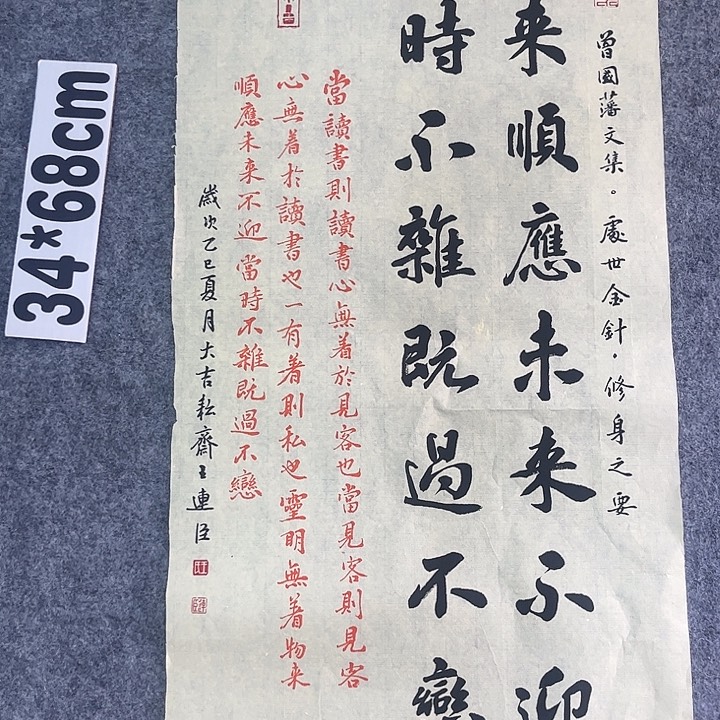 曾國藩文集。處世金針·修身之要
来順應未来不迎
時不雜既過不戀
當讀書則讀書心無着於見客也當見客則見客
心無着於讀書也一有着則私也靈明無着物来
順應未来不迎當時不雜既過不戀
歲次乙巳夏月大吉耘齋王連臣
34*68cm